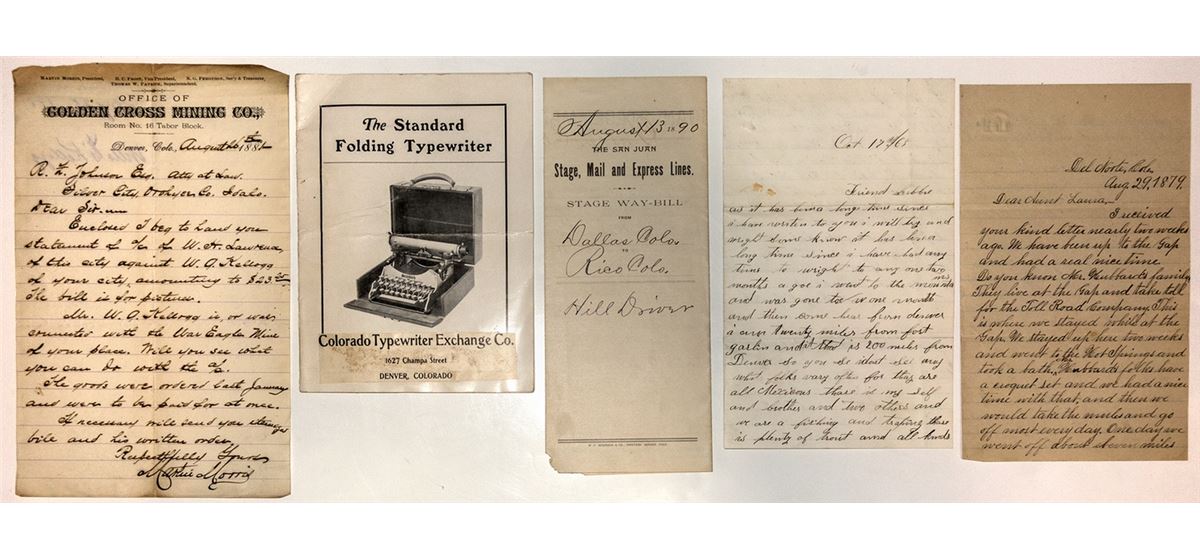 MARTIN MORRIS, President, H. C. FROST, Vice President, N. G. FERGUSON, Sec'y & Treasurer,
THOMAS W. PATRICK, Superintendent,
OFFICE OF
GOLDEN CROSS MINING CO.,
Room No. 16 Tabor Block.
Denver, Colo, August 188
R. Z. Johnson Esq. Atty at Law.
Silver City, Owhyer Co. Idaho.
Dear Sir.
Enclosed I beg to hand you
statement of a/c of W. H. Lawrence
of this city against W. O. Kellogg
of your city, amounting to $23
The bill is for pictures.
Mr. W. O. Kellogg is, or was
connected with the War Eagle Mine
of your place. Will you see what
you can do with the a/c.
The goods were ordered last January
and were to be paid for at once.
If necessary will send you itemized
bill and his written order.
Respectfully Yours
Martin Morris
The Standard
Folding Typewriter
Colorado Typewriter Exchange Co.
1627 Champa Street
DENVER, COLORADO
August 13 1890
THE SAN JUAN
Stage, Mail and Express Lines.
STAGE WAY-BILL
FROM
Dallas Colo.
TO
Rico Colo.
Hill Driver
Oct 17
Friend
as it has bin a long time since
i have wroten to you i will try and
wright some know it has bin a
long time since i have had any
time to wright to any one two
months a goe i went to the
and was gone to one month
and then come hear from denver
i am twenty miles from fort
garlen and it is 200 miles from
Denver so you se idont see any
whit folks vary often for thay are
all Mexicans thare is my self
and brother and two others and
we are a fishing and traping thare
is plenty of trout and all kinds
Del Norte, Colo.
Aug 29, 1879.
Dear Aunt Laura,
I received
your kind letter nearly two weeks
ago. We have been up to the Gap
and had a real nice time.
Do you know Mr. Hubbards family
They live at the Gap and take toll
for the Toll Road Company. This
is where we stayed while at the
Gap. We stayed up here two weeks
and went to the Hot Springs and
took a bath. The Hubbards folks have
a croquet set and we had a nice
time with that, and then we
would take the mules and go
off most every day. One day we
went off about seven miles